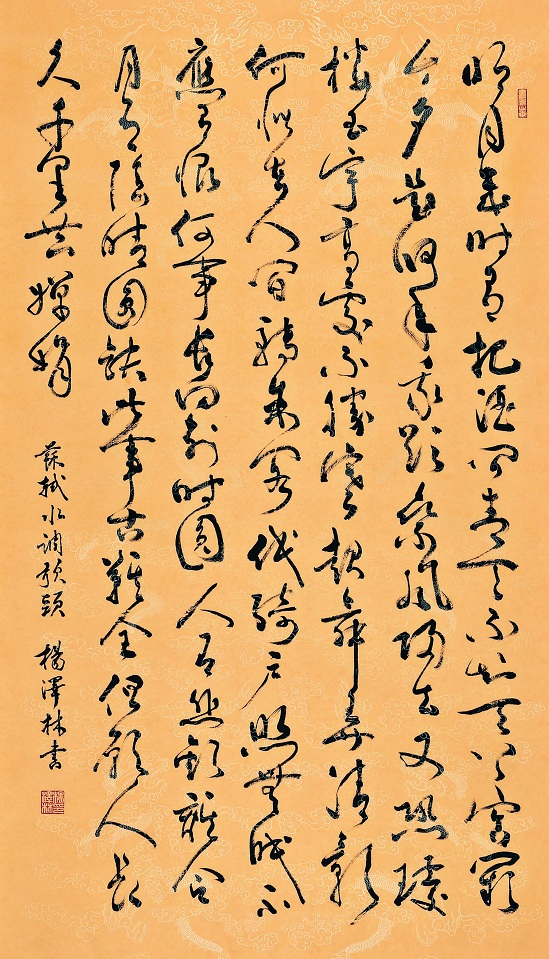 明月幾时有把酒问青天不知天上宫阙
今夕是何年我欲乘风归去又恐瓊
樓玉宇高處不勝寒起舞弄清影
何似在人间轉朱阁低绮户照無眠不
應有恨何事长向别时圆人有悲歡離合
月有陰晴圆缺此事古難全但願人长
久千里共嬋娟
蘇軾水调歌頭 楊澤林书